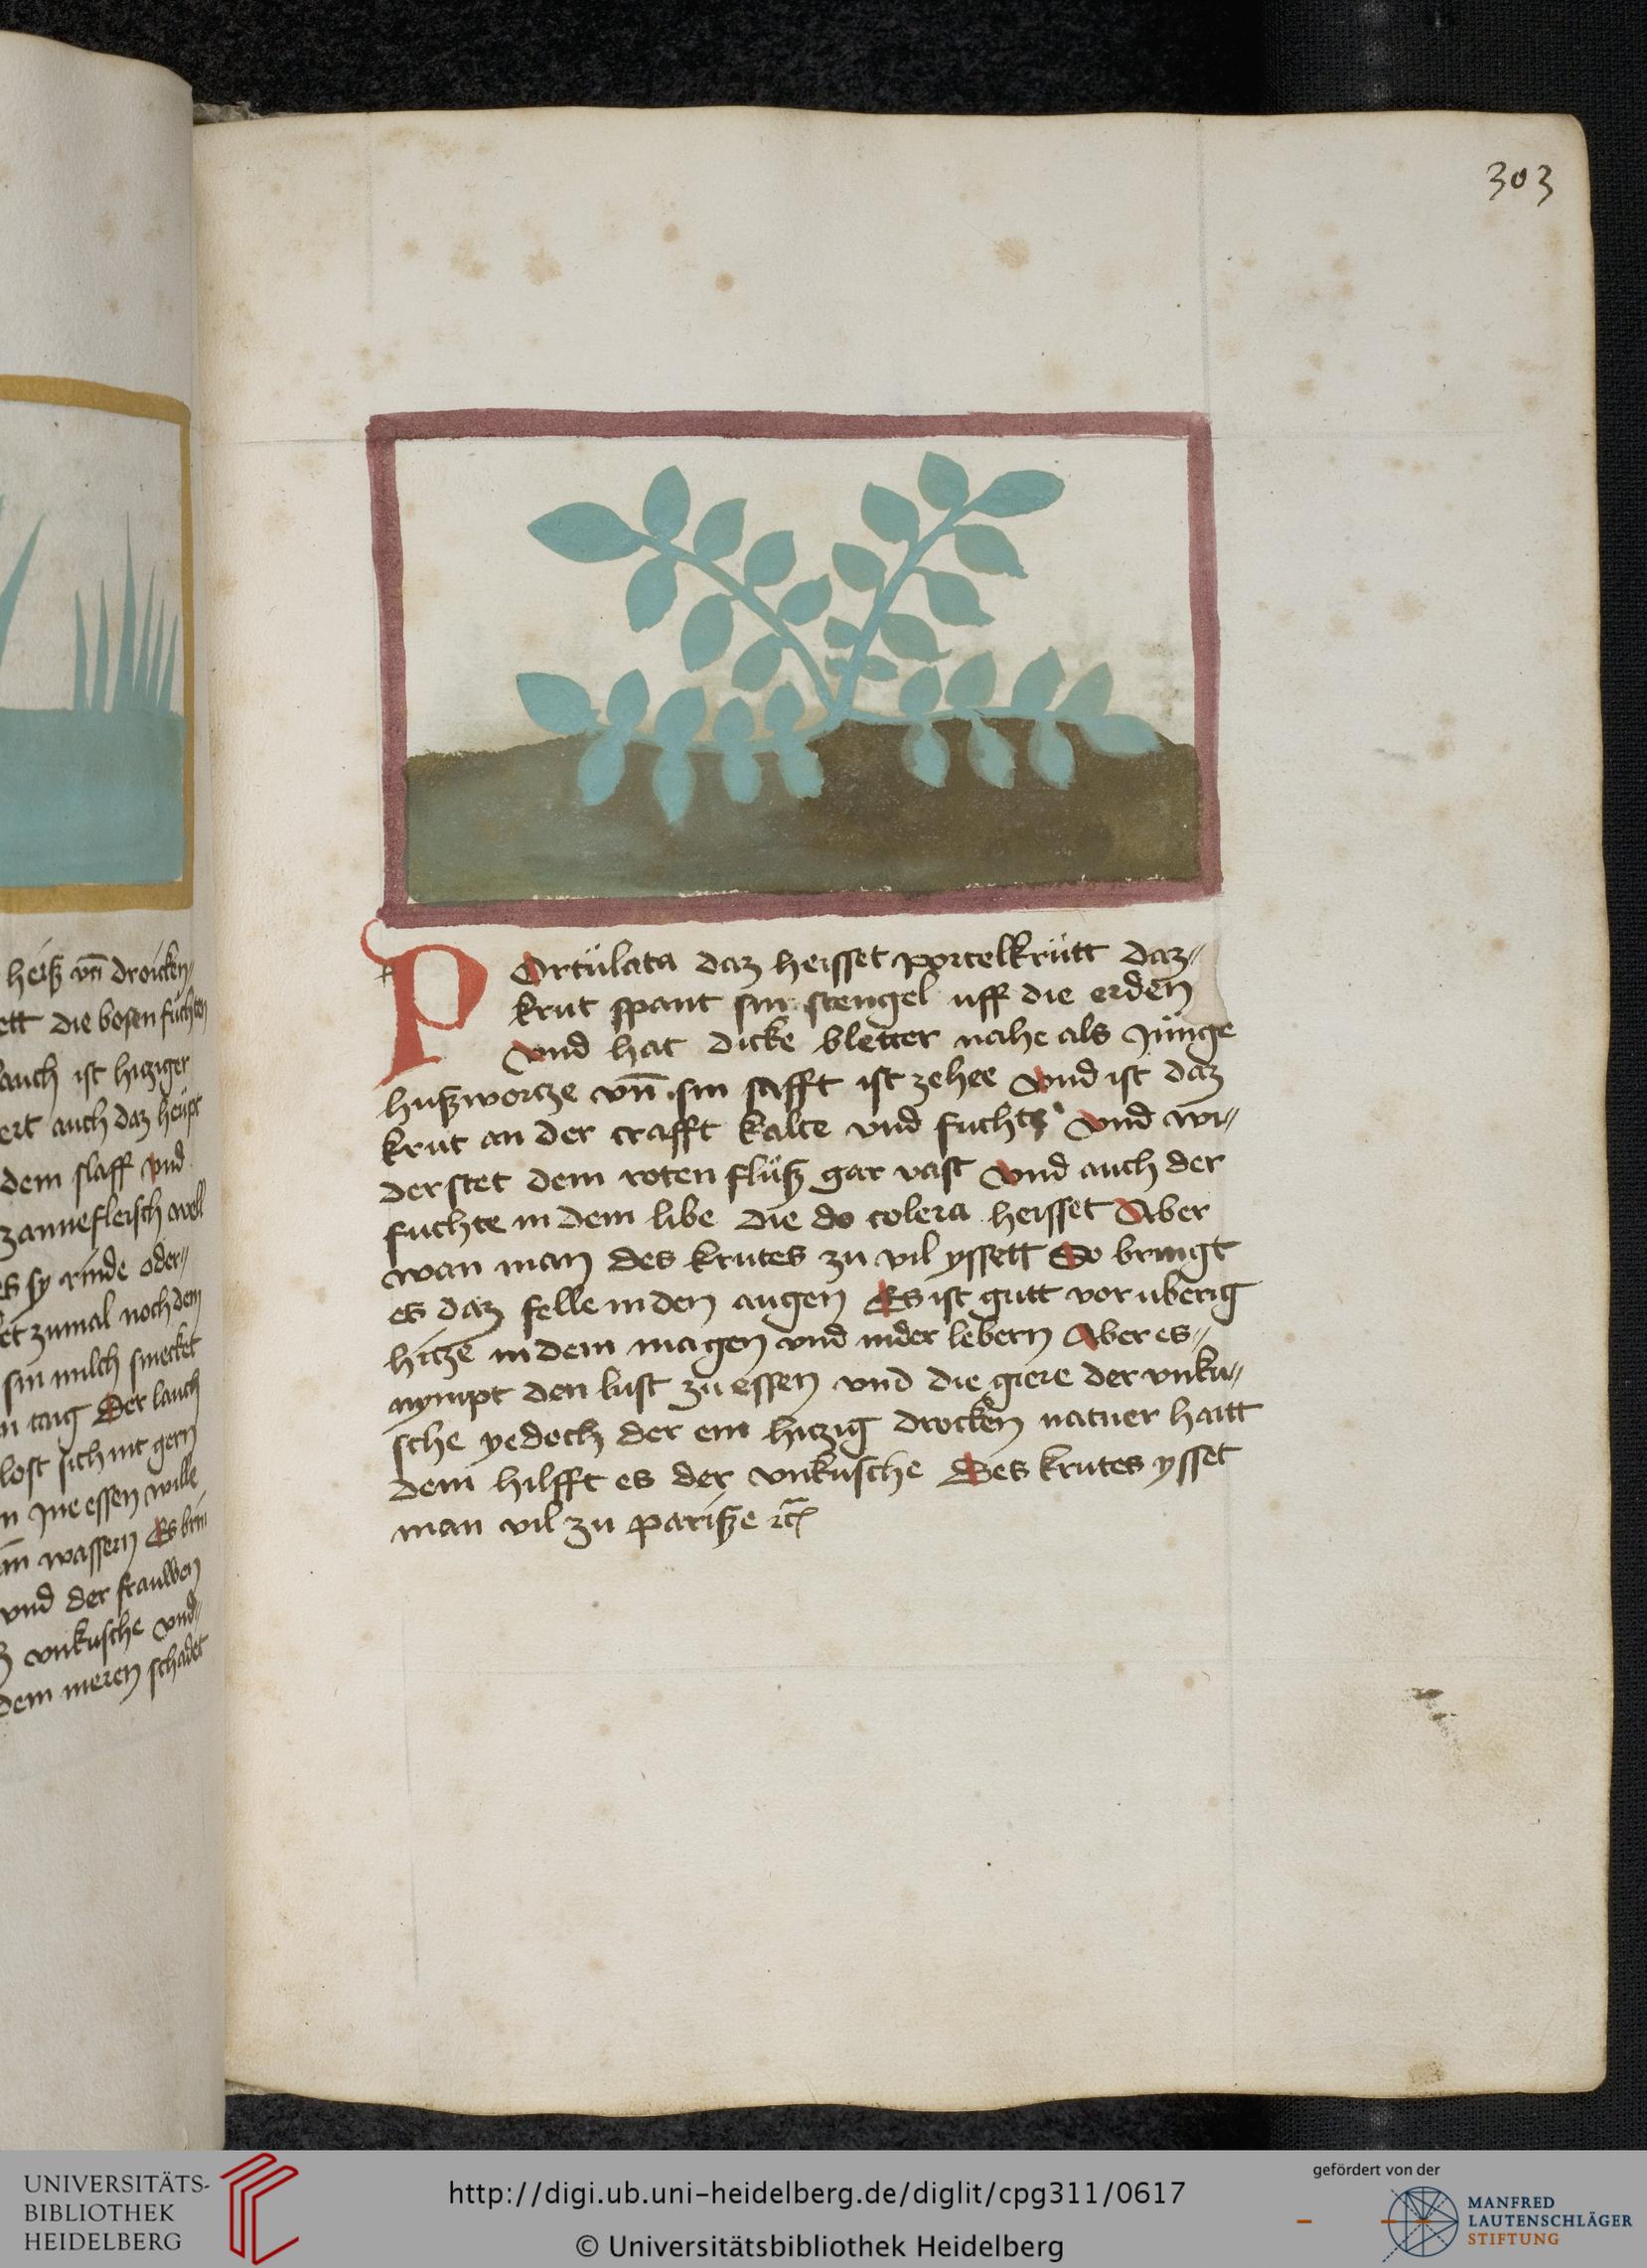 heiß vn̄ droicken
ett die bosen fuchten
lauch ist hitziger
ert auch daz heüpt
dem slaff vnd
zannefleisch well
es sy rinde oder
zumal noch dem
sin milch smecket
taig Der lauch
lost sich nit gern
Jne essen wille
wassern Es brin
vnd der frauwen
vnkusche vnd
dem meren schadet
303
POrtülata daz heisset portelkrütt daz
krut spant sin stengel uff die erden
Vnd hat dicke bletter nahe als Jünge
hußwortze vn̄ sin safft ist zehee Vnd ist daz
krut an der crafft kalte vnd fucht Vnd wi
derstet dem roten flüß gar vast Vnd auch der
fuchte in dem libe die do colera heisset Aber
wan man des krutes zu vil yssett So bringt
es daz felle in den augen Es ist gutt vor uberig
hitze in dem magen vnd in der lebern Aber es
nympt den lust zu essen vnd die giere der vnku
sche yedoch der ein hitzig drocken natuer haitt
dem hilfft es der vnkusche Des krutes ysset
man vil zu pariße
UNIVERSITÄTS-
BIBLIOTHEK
HEIDELBERG
http://digi.ub.uni-heidelberg.de/diglit/cpg311/0617
© Universitätsbibliothek Heidelberg
gefördert von der
MANFRED
LAUTENSCHLÄGER
STIFTUNG